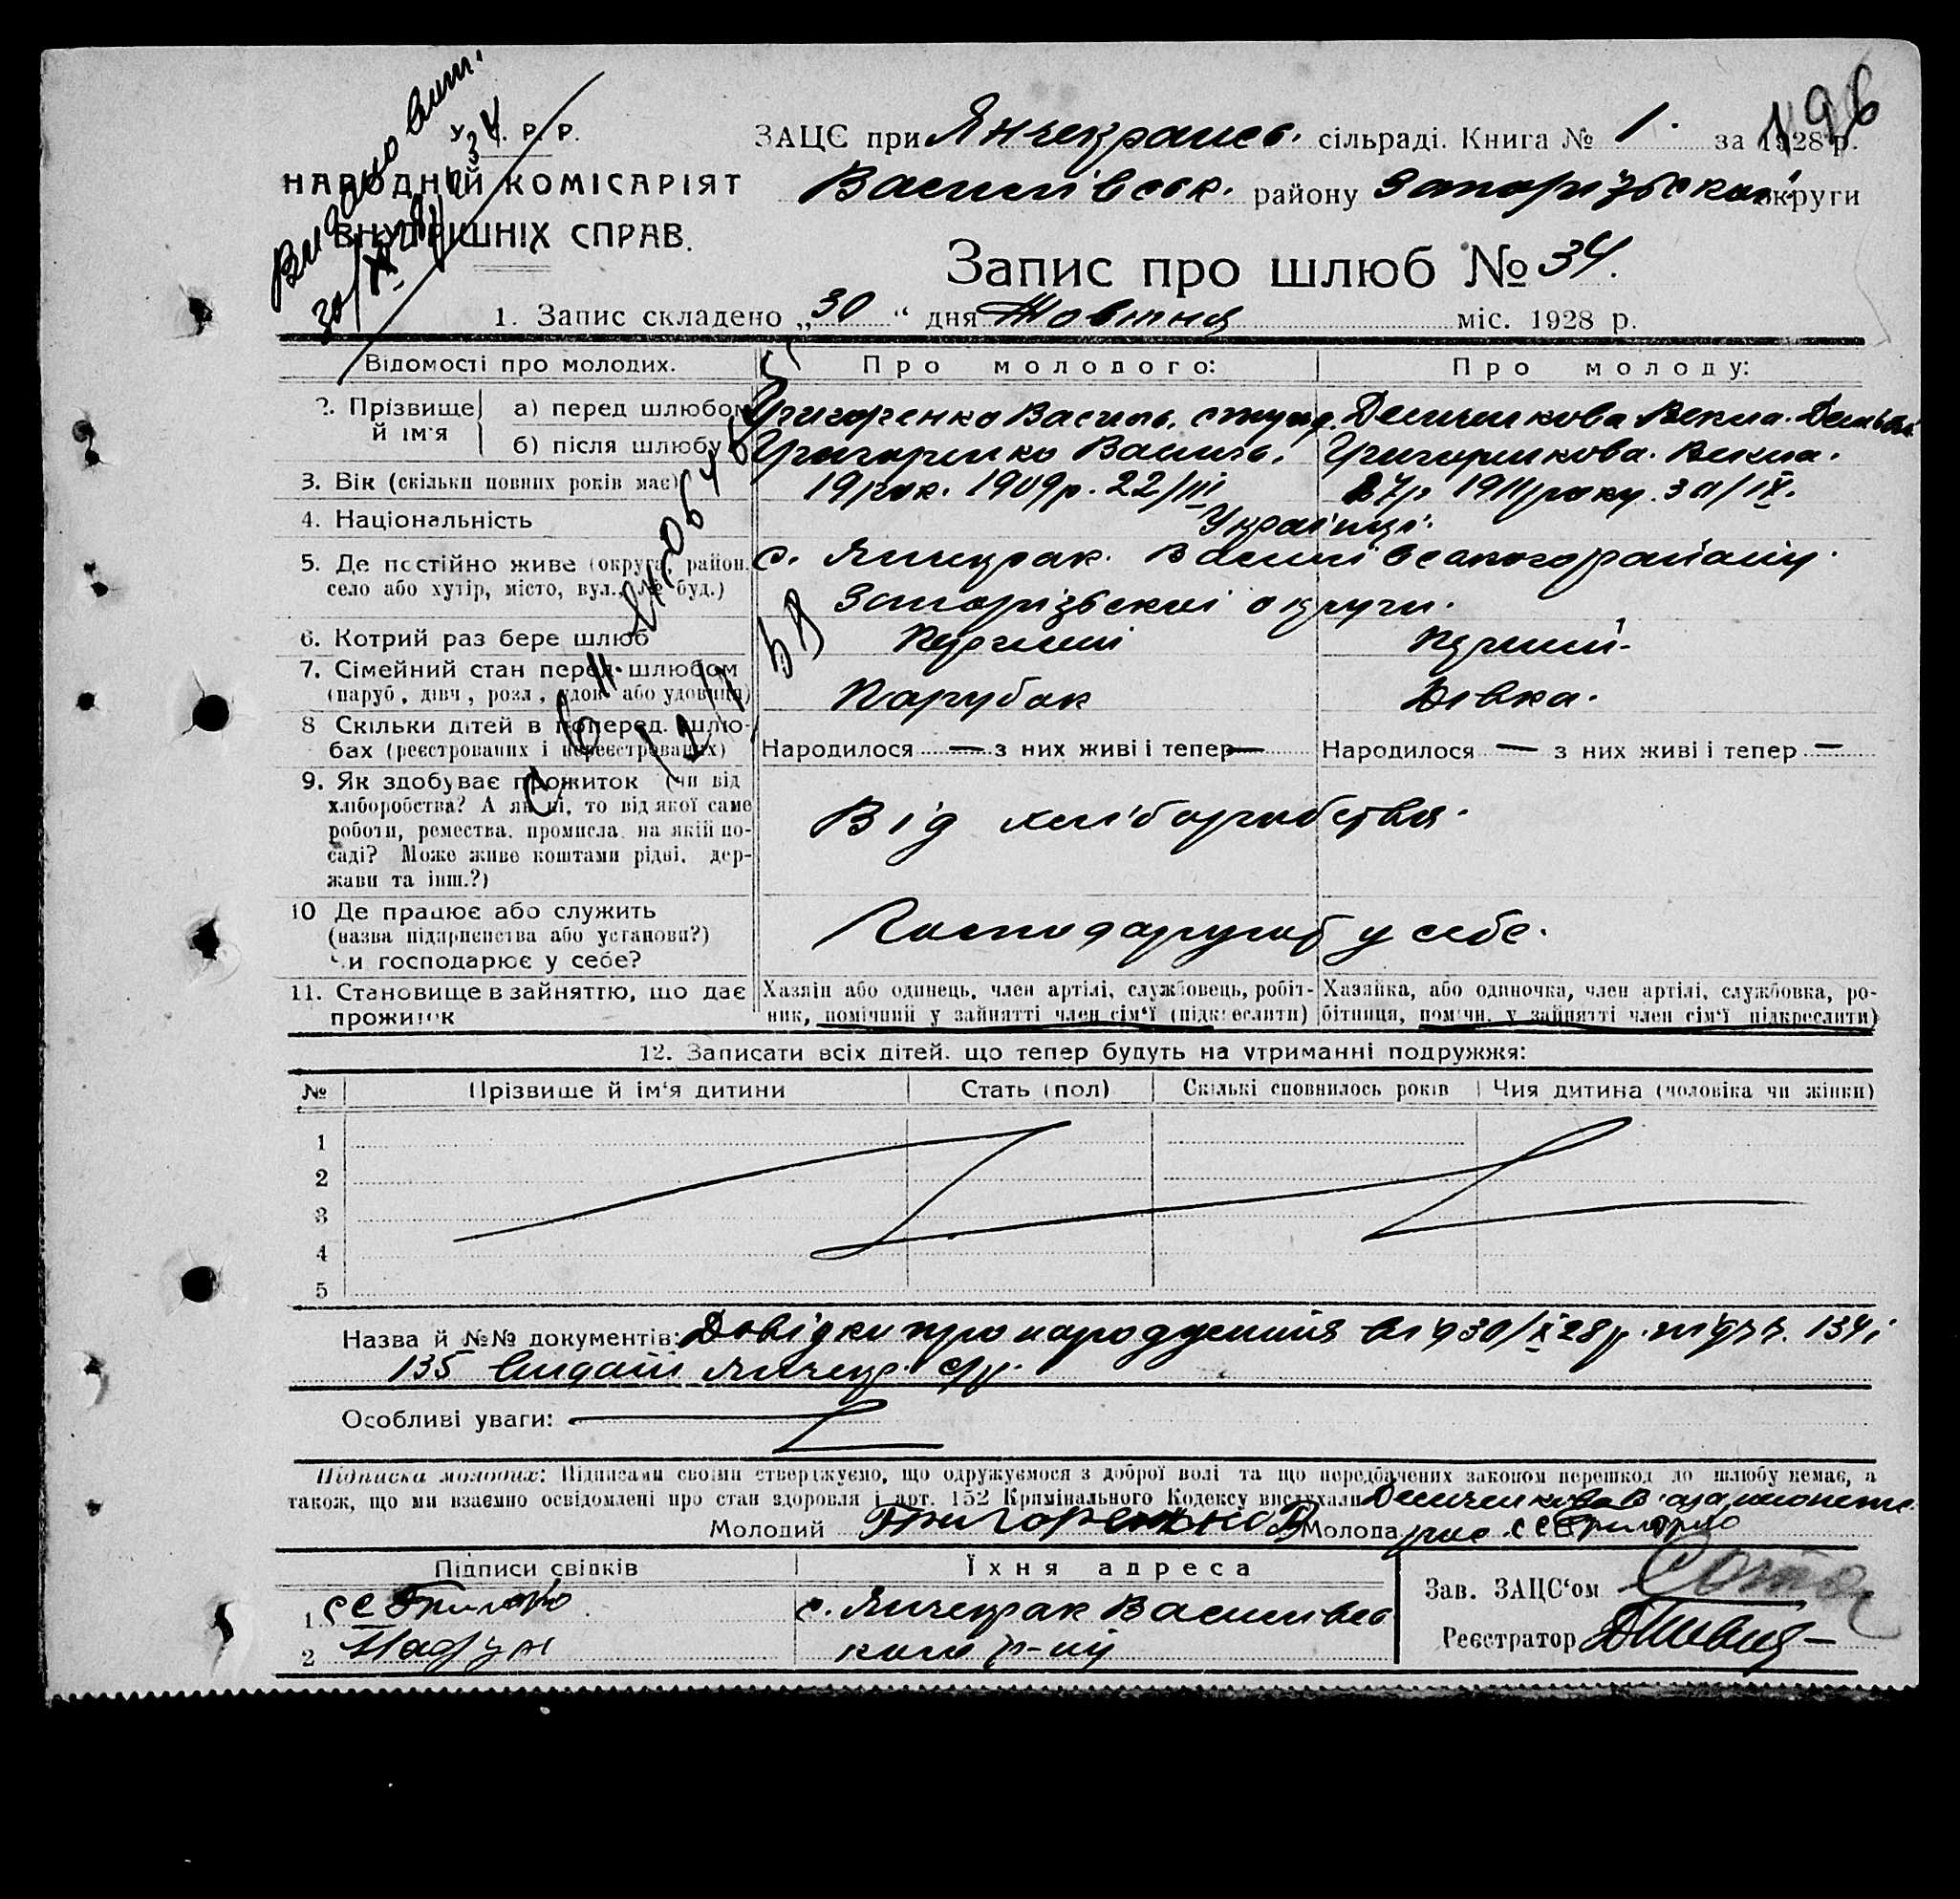 196
У. С. Р. Р.
НАРОДНІЙ КОМІСАРІЯТ
ВНУТРІШНІХ СПРАВ.
ЗАЦС при Янчекрацьк. сільраді. Книга № 1. за 1928 р.
Василівськ. району Запорізької округи
Запис про шлюб № 34.
1. Запис складено „30“ дня Жовтня міс. 1928 р.
Відомості про молодих. Про молодого: Про молоду:
2. Прізвище й ім'я а) перед шлюбом Григоренко Василь Демченкова Векла
б) після шлюбу Григоренко Василь. Григоренкова Векла.
3. Вік (скільки повних років має) 19 рок. 1909 р. 22/III 17 р 1911 року 30/IX.
4. Національність Українці.
5. Де постійно живе (округа, район, с. Янчекрак Василівського району
село або хутір, місто, вул., № буд.) Запорізької округи.
6. Котрий раз бере шлюб Перший Перший
7. Сімейний стан перед шлюбом
(паруб, дівч, розл, удов. або удовиця) Парубак Дівка.
8 Скільки дітей в поперед. шлю-
бах (реєстрованих і нереєстрованих) Народилося — з них живі і тепер — Народилося — з них живі і тепер —
9. Як здобуває прожиток (чи від
хліборобства? А як ні, то від якої саме
роботи, ремества, промисла, на якій по- Від хліборобства.
саді? Може живе коштами рідні, дер-
жави та інш.?)
10 Де працює або служить
(назва підприємства або установи?) Господарують у себе.
Чи господарює у себе?
11. Становище в зайняттю, що дає Хазяїн або одинець, член артілі, службовець, робіт- Хазяйка, або одиночка, член артілі, службовка, ро-
прожиток ник, помічний у зайнятті член сім'ї (підкреслити) бітниця, помічн. у зайнятті член сім'ї підкреслити)
12. Записати всіх дітей, що тепер будуть на утриманні подружжя:
№ Прізвище й ім'я дитини Стать (пол) Скількі сповнилось років Чия дитина (чоловіка чи жінки)
1
2
3
4
5
Назва й №№ документів: Довідки про народження від 30/X 28 р. 134 і
135 видані Янчекр. с/р.
Особливі уваги:
Підписка молодих: Підписами своїми стверджуємо, що одружуємося з доброї волі та що передбачених законом перешкод до шлюбу немає, а
також, що ми взаємно освідомлені про стан здоровля і арт. 152 Кримінального Кодексу вислухали Демченкова В.
Молодий Григоренко В Молода
Підписи свідків Їхня адреса
1 с. Янчекрак Василівсь
2 кого р-ну
Зав. ЗАЦС'ом
Реєстратор